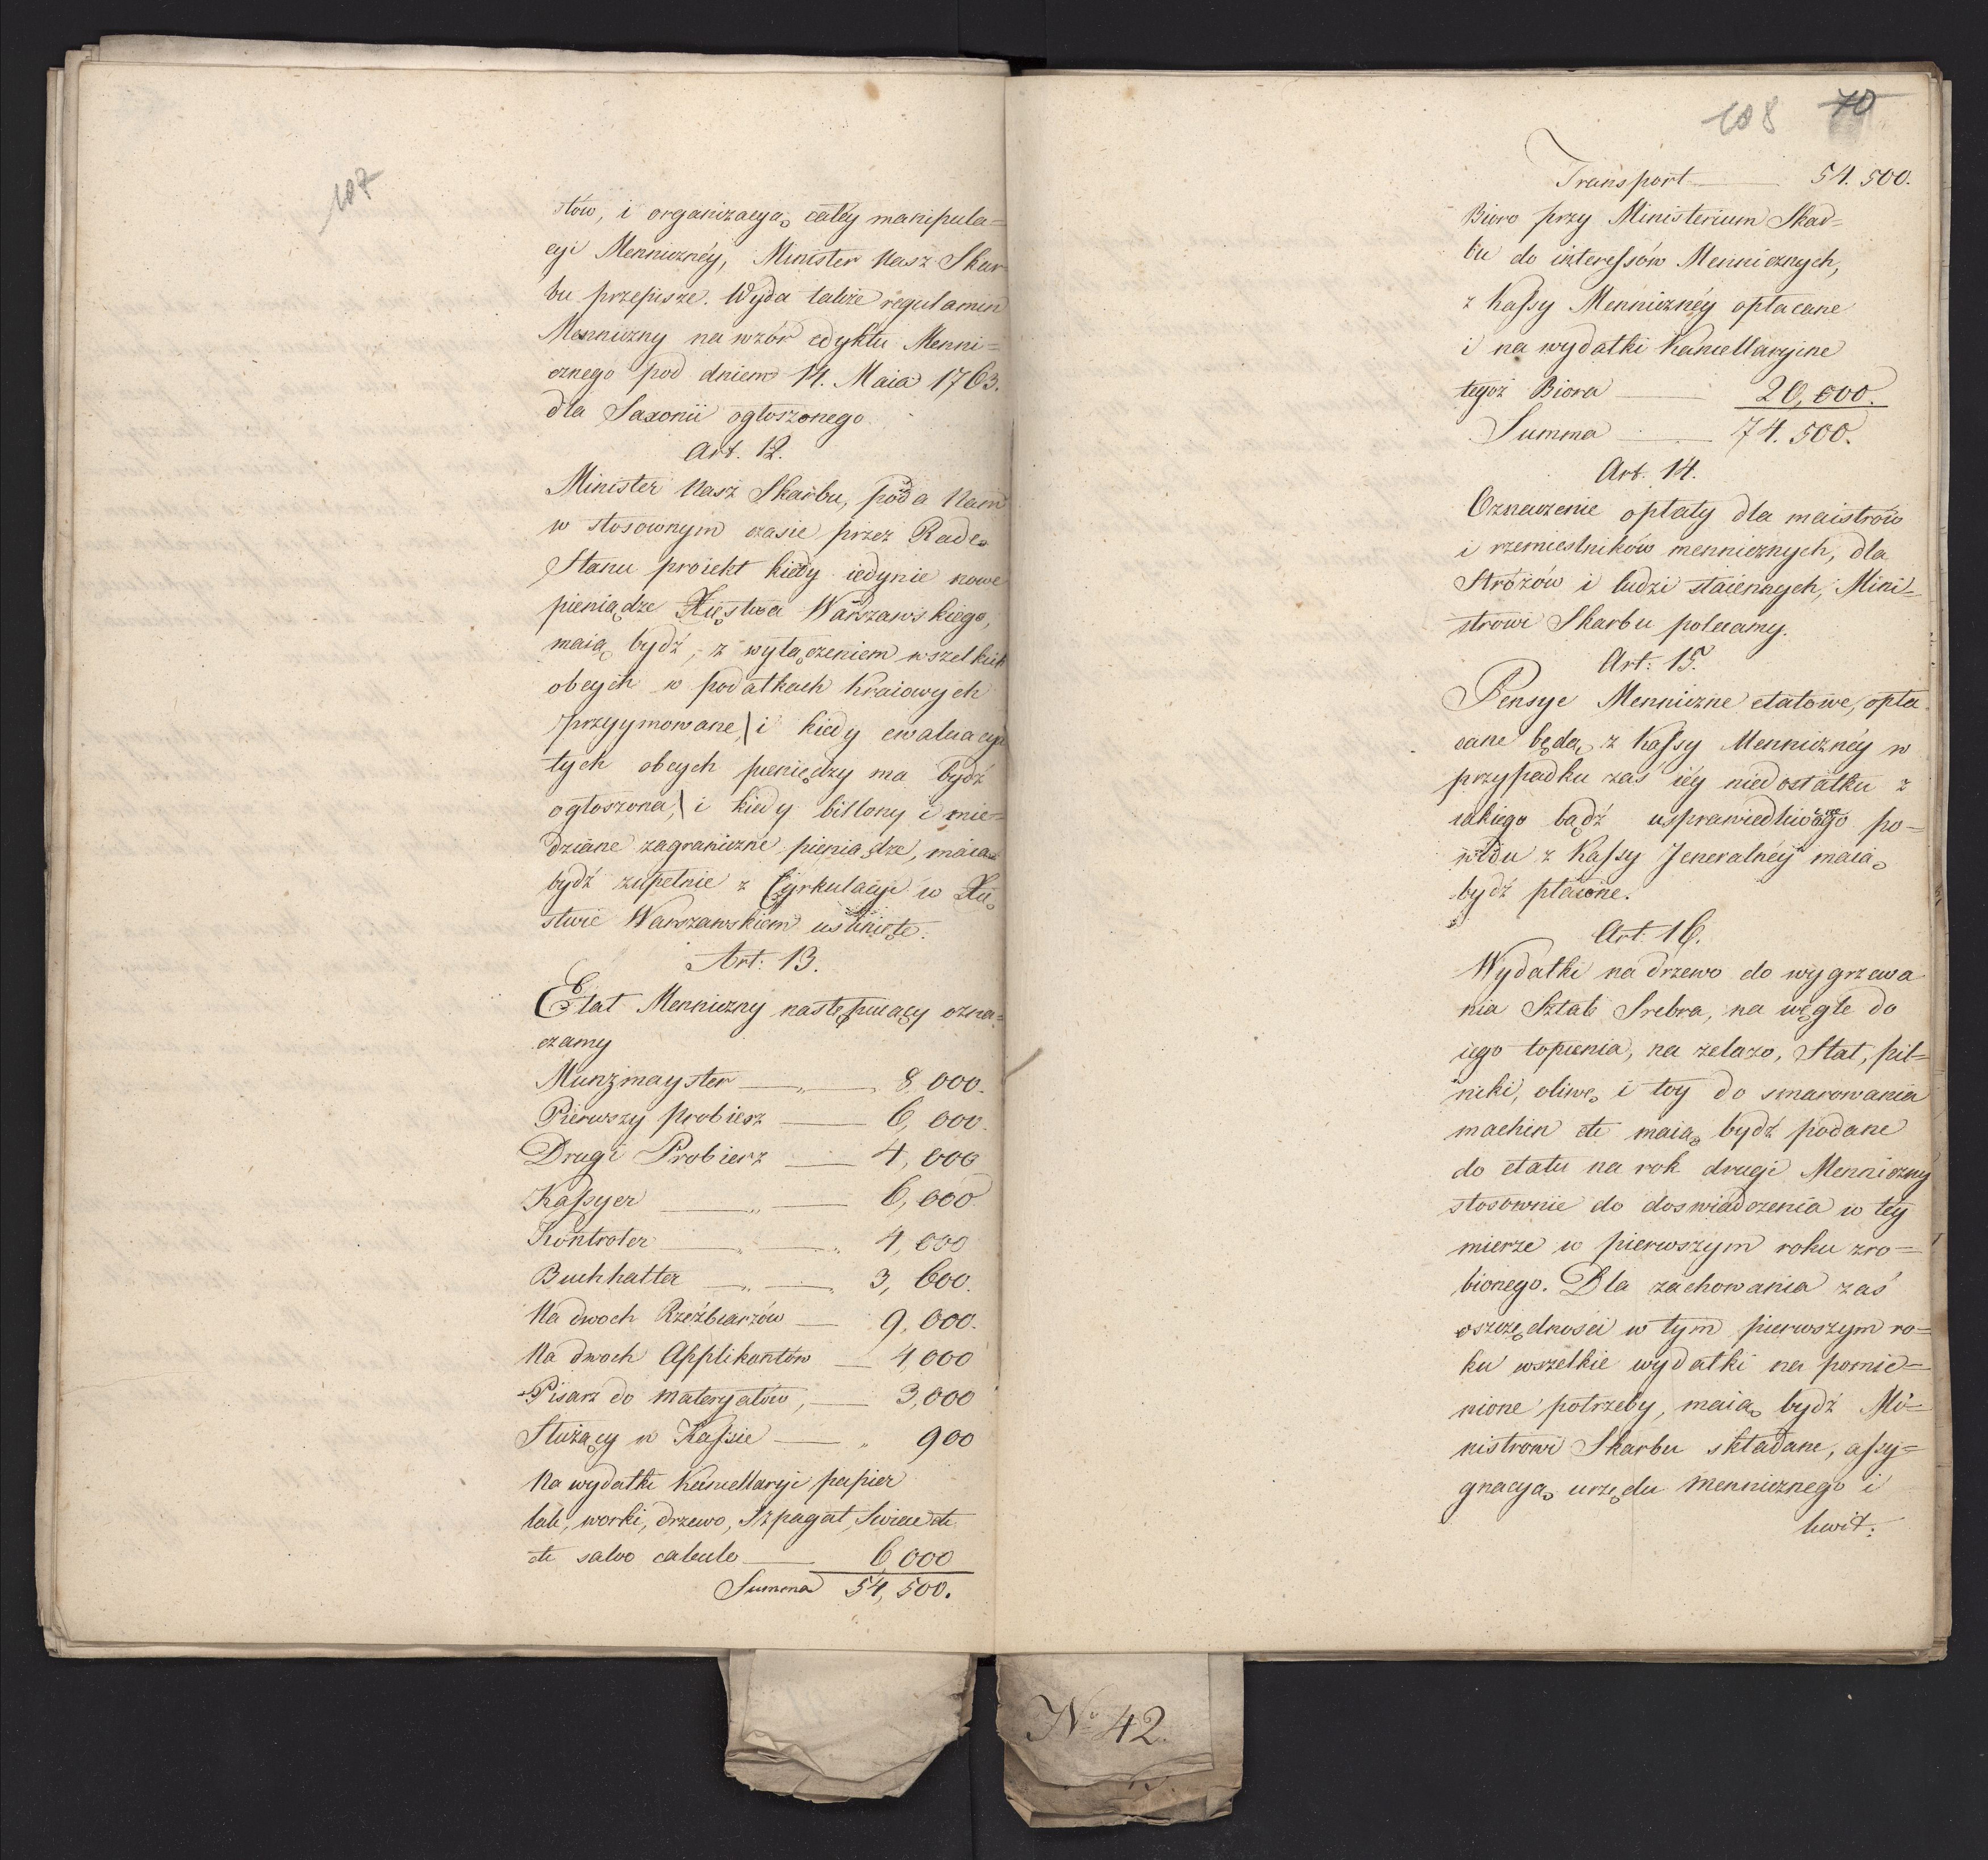 107
stów, i organizacyą całéy manipula=
cyi Menniczney, Minister Nasz Skar=
bu przepisze. Wyda także regulamin
Menniczny na wzór edyktu Menni=
cznego pod dniem 14. Maia 1763.
dla Saxonii ogłoszonego.
Art. 12.
Minister Nasz Skarbu, poda Nam
w stosownym czasie przez Radę
Stanu proiekt kiedy iedynie nowe
pieniądze Xięstwa Warszawskiego,
maią bydź, z wyłączeniem wszelkich
obcych w podatkach kraiowych
przyymowane, i kiedy ewaluacya
tych obcych pieniędzy ma bydź
ogłoszona, i kiedy billony i mie=
dziane zagraniczne pieniądze, maią
bydź zupełnie z Cyrkulacyi w Xię
stwie Warszawskiem usunięte.
Art: 13.
Etat Menniczny następuiący ozna=
czamy
Munzmayster — „ — 8,000.
Pierwszy probierz — 6,000.
Drugi Probierz — 4,000
Kassyer — „ — 6,000
Kontroler — „ — „ 4,000
Buchhalter — „ — „ 3,600.
Na dwoch Rzeźbiarzów — 9,000.
Na dwoch Applikantów — 4,000
Pisarz do materyałów, — 3,000
Służący w Kassie — „ 900
Na wydatki Kancellaryi papier
lak, worki, drzewo, Szpagat, Swiece etc
etc salvo calculo — 6,000
Summa 54,500.
108 70
Transport — 54.500.
Biuro przy Ministerium Skar=
bu do interessów Mennicznych,
z Kassy Mennicznéy opłacane
i na wydatki Kancellaryine
tegoż Biora — 20,000.
Summa — 74.500.
Art. 14.
Oznaczenie opłaty dla maistrów
i rzemieslników mennicznych, dla
Stróżów i ludzi staiennych, Mini=
strowi Skarbu polecamy.
Art: 15.
Pensye Menniczne etatowe, opła
cane będą z Kassy Mennicznéy w
przypadku zaś iéy niedostatku z
iakiego bądź usprawiedliwionego po=
wodu z Kassy Jeneralnéy maią
bydź płacone.
Art: 16.
Wydatki na drzewo do wygrzewa
nia Sztab Srebra, na węgle do
iego topienia, na żelazo, Stal, pil=
niki, oliwę i łóy do smarowania
machin etc maią bydź podane
do etatu na rok drugi Menniczny
stosownie do doswiadczenia w téy
mierze w pierwszym roku zro=
bionego. Dla zachowania zaś
oszczędności w tym pierwszym ro=
ku wszelkie wydatki na pomie=
nione potrzeby, maią bydź Mi=
nistrowi Skarbu składane, assy=
gnacyą urzędu Mennicznego i
kwit:
No 42.